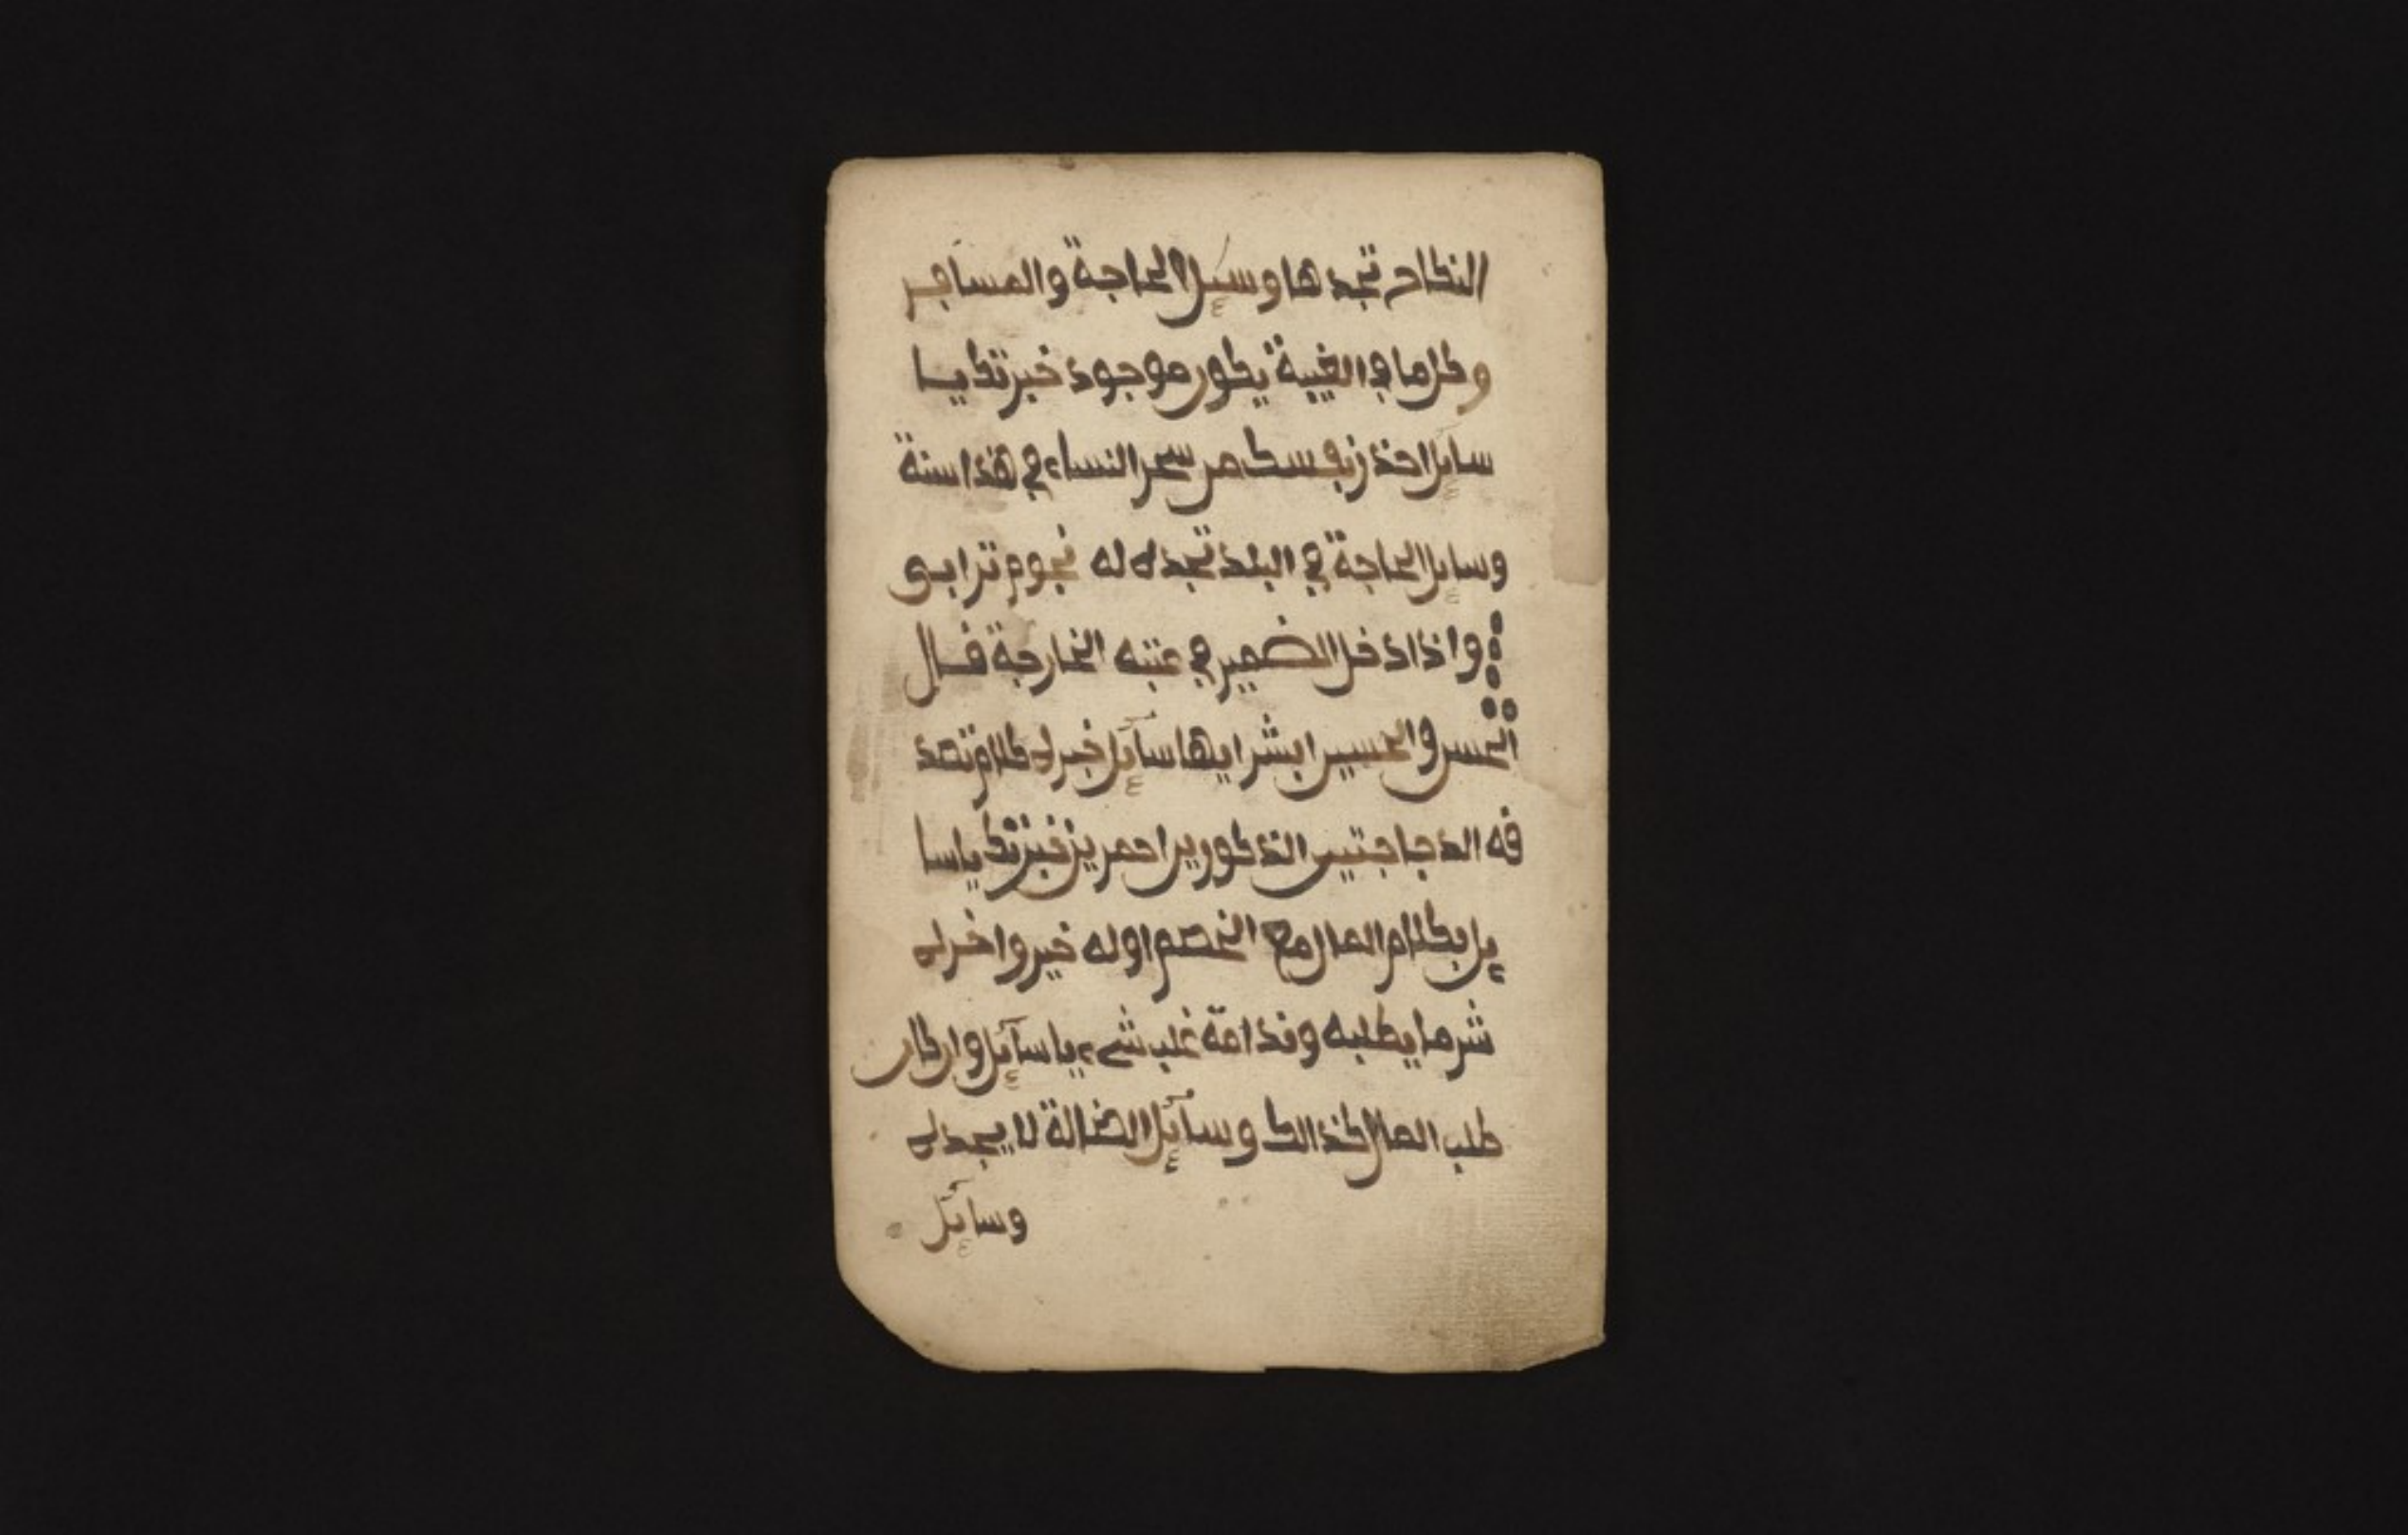 النكاح تجدها وسىٕل الحاجة والمسافر
وكل ما في الغيبة يكون موجود خبرتك يا
سايٕل احذر نفسك من سحر النساء في هذا سنة
وسايٕل الحاجة في البلد تجده له نجوم ترابى
واذا دخل الضمير في عتبه الخارجة قال
الحسن والحسين ابشر ايها سآئل خبر له كلام تصد
قه الدجاجتين الذكورين احمرين خبرتك يا سا
يٕل بكلام المال مع الخصم اوله خير واخر له
شر ما يطلبه وندامة غلب شىء يا سآئل وان كان
طلب المال كذالك وسآئل الضالة لا يجد له
وسايٕل